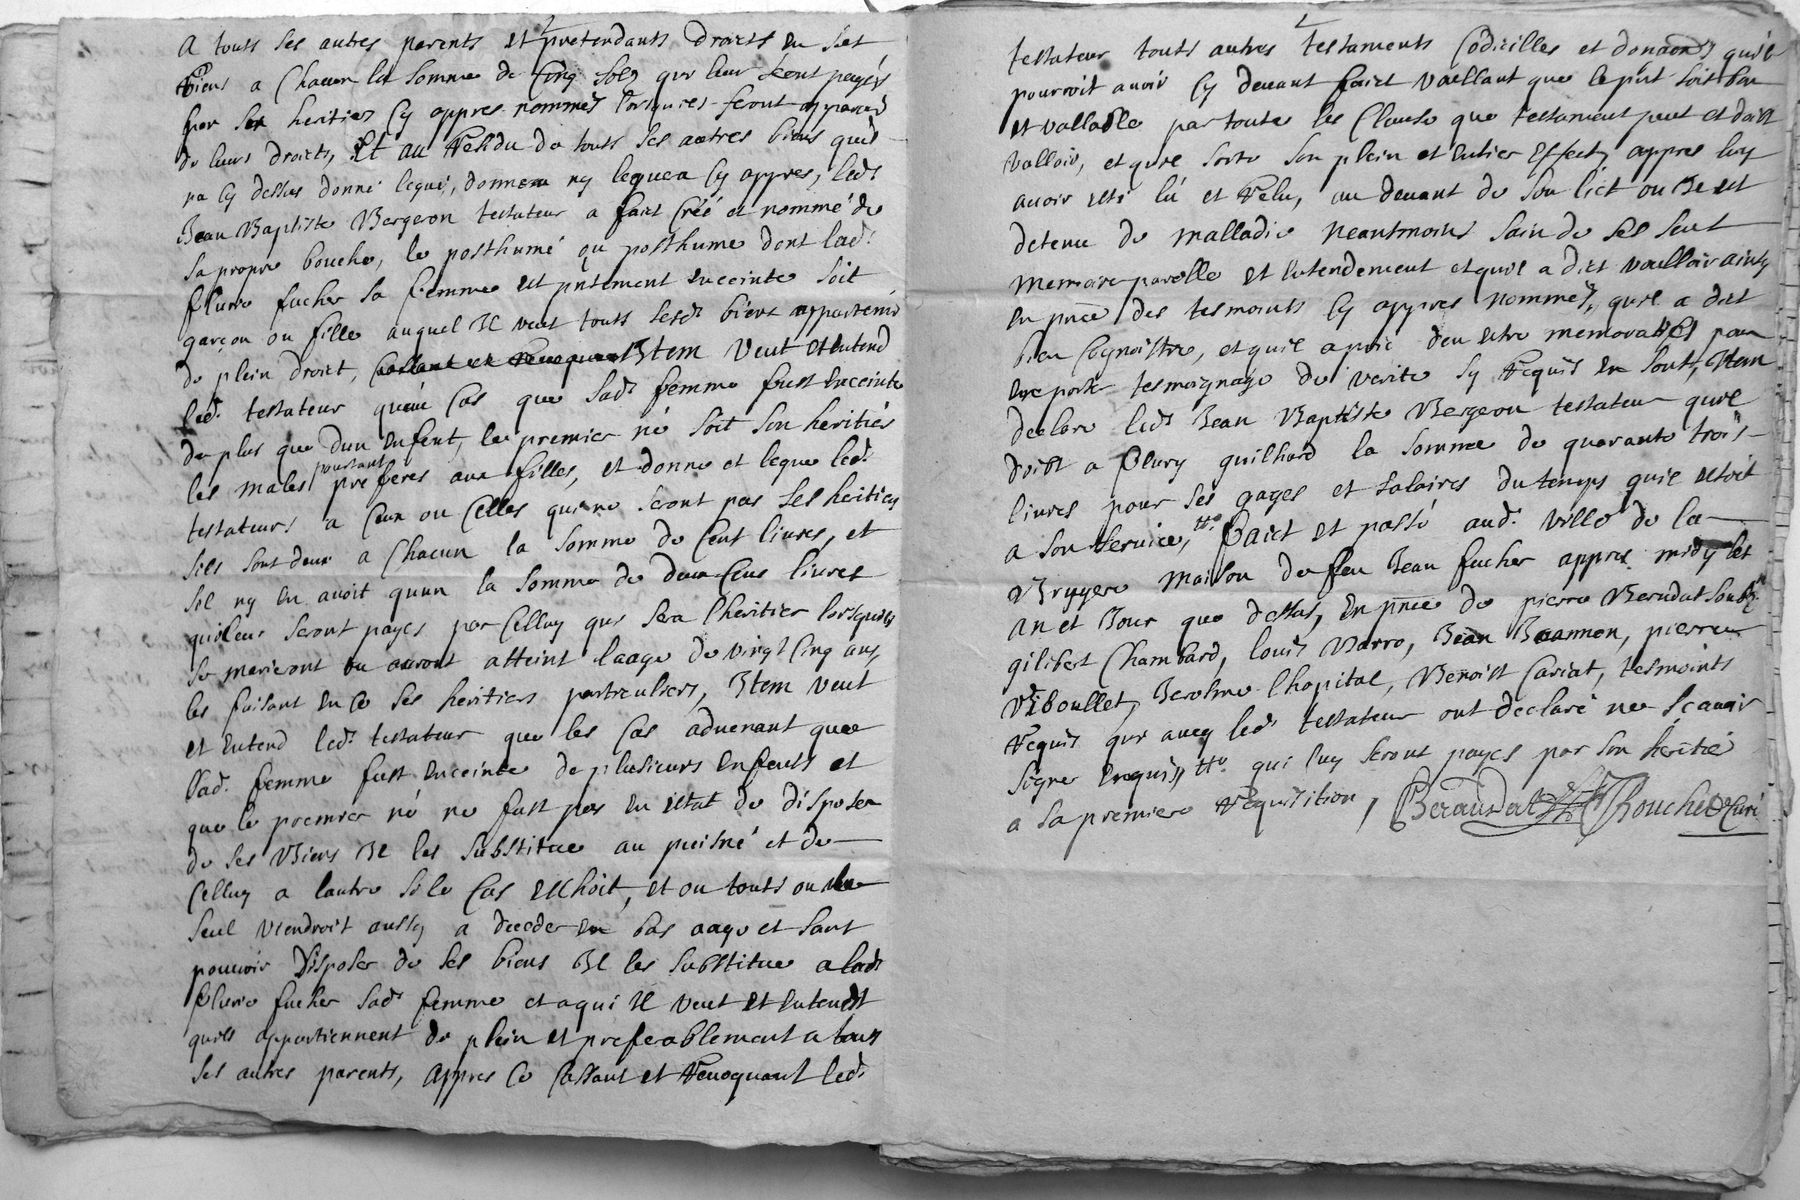 A touts ses autres parents et pretendants droicts en ses
biens a Chacun la somme de Cinq sols qui leur seront payés
par ses heritiers Cy appres nommés lorsqu'ils feront apparoir
de leurs droicts, Et au residu de touts ses autres biens quil
na Cy dessus donné legué, donnera ny leguera Cy appres, led.
Jean Baptiste Bergeron testateur a faict Créé et nommé de
sa propre bouche, le posthumé ou posthume dont lad.
fleurie fucher sa femme est pntement enceinte soit
garçon ou fille auquel Il veut touts sesd. biens appartenir
de plein droict, Item veut et entend
led. testateur quen Cas que sad. femme fust enceinte
de plus que dun enfent, le premier né soit son heritier
les males pourtant preferes aux filles, et donne et legue led.
testateur a Ceux ou Celles qui ne seront pas ses heritiers
sils sont deux a Chacun la somme de Cent livres, et
sil ny en avoit quun la somme de deux Cens livres
qui leur seront payes par Celluy qui sera lheritier lorsquils
se marieront ou auront atteint laage de vingt Cinq ans,
les faisant en Ce ses heritiers particuliers, Item veut
et entend led. testateur que les Cas advenant que
sad. femme fust enceinte de plusieurs enfents et
que le premier né ne fust pas en estat de disposer
de ses biens Il les substitue au puisné et de
Celluy a lautre si le Cas escheoit, et ou touts ou un
seul viendroit aussy a deceder en bas aage et sans
pouvoir disposer de ses biens Il les substitue a lad.
fleurie fucher sad. femme et a qui Il veut et entendt
quils appartiennent de plein et preferablement a touts
ses autres parents, appres Ce Cassant et revoquant led.
testateur touts autres testaments Codicilles et donaons quil
pourroit avoir Cy devant faict vaeillant que le pnt soit bon
et vallable par toutes les Clauses que testament peut et doibt
valloir, et quil sorte son plein et entier effect, appres luy
avoir esté lû et relu, au devant de son lict ou Il est
detenu de malladie neantmoins sain de ses sens
memoire parolle et entendement et quil a dict voulloir ainsy
en pnce des tesmoints Cy appres nommés, quil a dict
bien Cognoistre, et quil a prié den estre memoratifs pour
en porter tesmoignage de verité sy requis en sont, Item
declare led. Jean Baptiste Bergeron testateur quil
doibt a fleury guilhard la somme de quarante trois
livres pour ses gages et salaires du temps quil estoit
a son service, tt. Faict et passé aud. Ville de la
Bruyere maison de feu Jean fucher appres midy les
an et Jour que dessus, en pnce de pierre Beraudat soubz.
gilibert Chambard, louis Barro, Jean Jeannon, pierre
Viboullet, Jerolme lhopital, Benoist Cariat, tesmoints
requis qui avec led. testateur ont declaré ne scavoir
signer enquis, tt. qui luy seront payes par son heritié
a sa premiere requisition, Beraudat Bouchet Curé